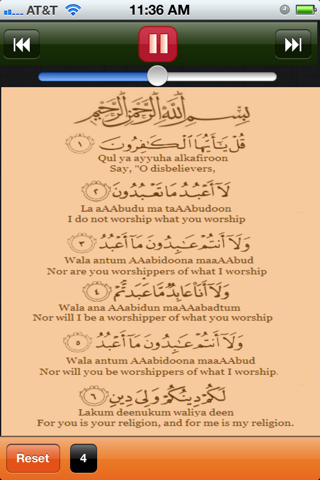 AT&T 11:36 AM
بِسْمِ اللَّهِ الرَّحْمَٰنِ الرَّحِيمِ
قُلْ يَٰٓأَيُّهَا ٱلْكَٰفِرُونَ ١
Qul ya ayyuha alkafiroon
Say, "O disbelievers,
لَآ أَعْبُدُ مَا تَعْبُدُونَ ٢
La aAAbudu ma taAAbudoon
I do not worship what you worship
وَلَآ أَنتُمْ عَٰبِدُونَ مَآ أَعْبُدُ ٣
Wala antum AAabidoona maaAAbud
Nor are you worshippers of what I worship
وَلَآ أَنَا۠ عَابِدٌ مَّا عَبَدتُّمْ ٤
Wala ana AAabidun maAAabadtum
Nor will I be a worshipper of what you worship
وَلَآ أَنتُمْ عَٰبِدُونَ مَآ أَعْبُدُ ٥
Wala antum AAabidoona maaAAbud
Nor will you be worshippers of what I worship.
لَكُمْ دِينُكُمْ وَلِىَ دِينِ ٦
Lakum deenukum waliya deen
For you is your religion, and for me is my religion.
Reset 4